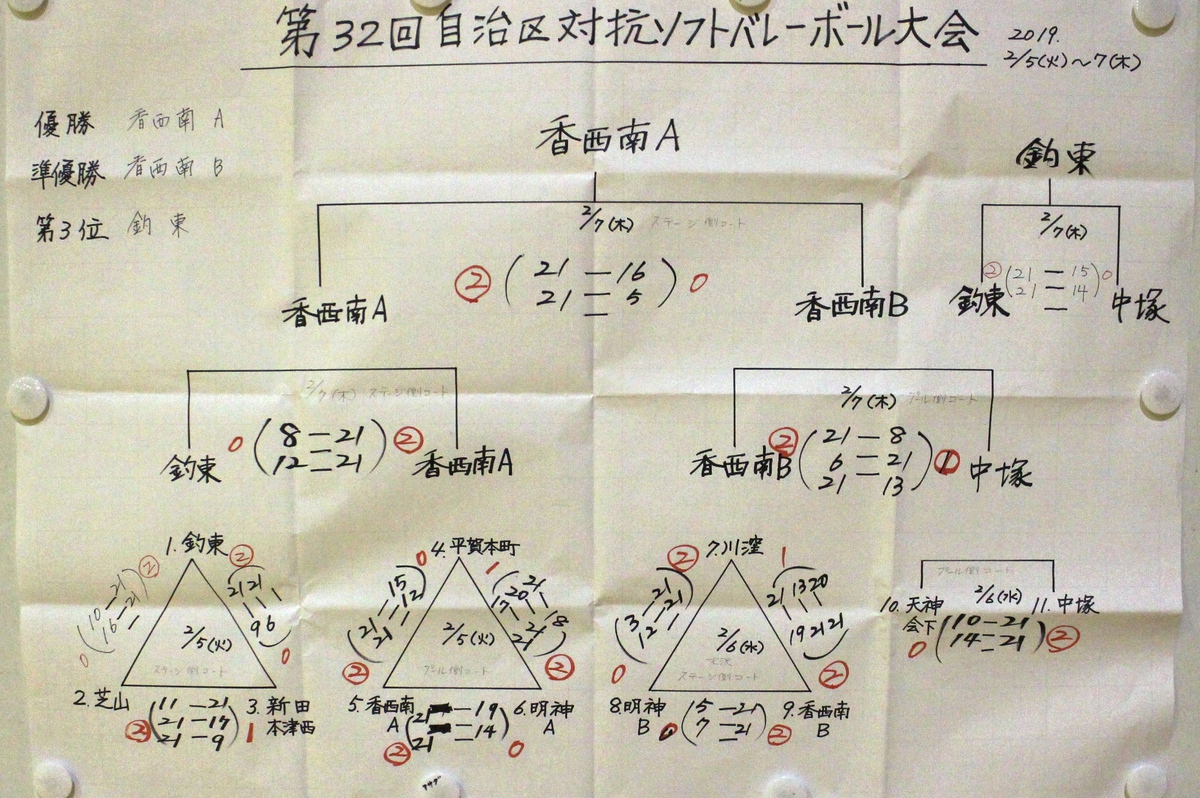 第32回自治区対抗ソフトバレーボール大会
2019.
2/5(火)～7(木)
優勝 香西南 A
準優勝 香西南 B
第3位 釣東
香西南A
2/7(木) ステージ側コート
② (21 － 16) 0
21 － 5
－
香西南A
香西南B
釣東
2/7(木)
② (21 － 15) 0
21 － 14
－
釣東
中塚
2/7(木) ステージ側コート
0 (8 － 21) ②
12 － 21
釣東
香西南A
2/7(木) プール側コート
② (21 － 8) 1
6 － 21
21 － 13
香西南B
中塚
1. 釣東
② 0
10 － 21
16 － 21
② 0
21 － 9
21 － 6
2/5(火)
ステージ側コート
2. 芝山
3. 新田
本津西
② (11 － 21) 1
21 － 17
21 － 9
4. 平賀本町
0 ②
15 － 21
12 － 21
1 ②
21 － 18
20 － 21
17 － 21
2/5(火)
プール側コート
5. 香西南
A
6. 明神
A
② (21 － 19) 0
21 － 14
7. 川窪
② 0
21 － 3
21 － 12
1 ②
21 － 19
13 － 21
20 － 21
2/6(水)
ステージ側コート
8. 明神
B
9. 香西南
B
0 (15 － 21) ②
7 － 21
プール側コート
2/6(水)
10. 天神
会下
11. 中塚
0 (10－21) ②
14－21